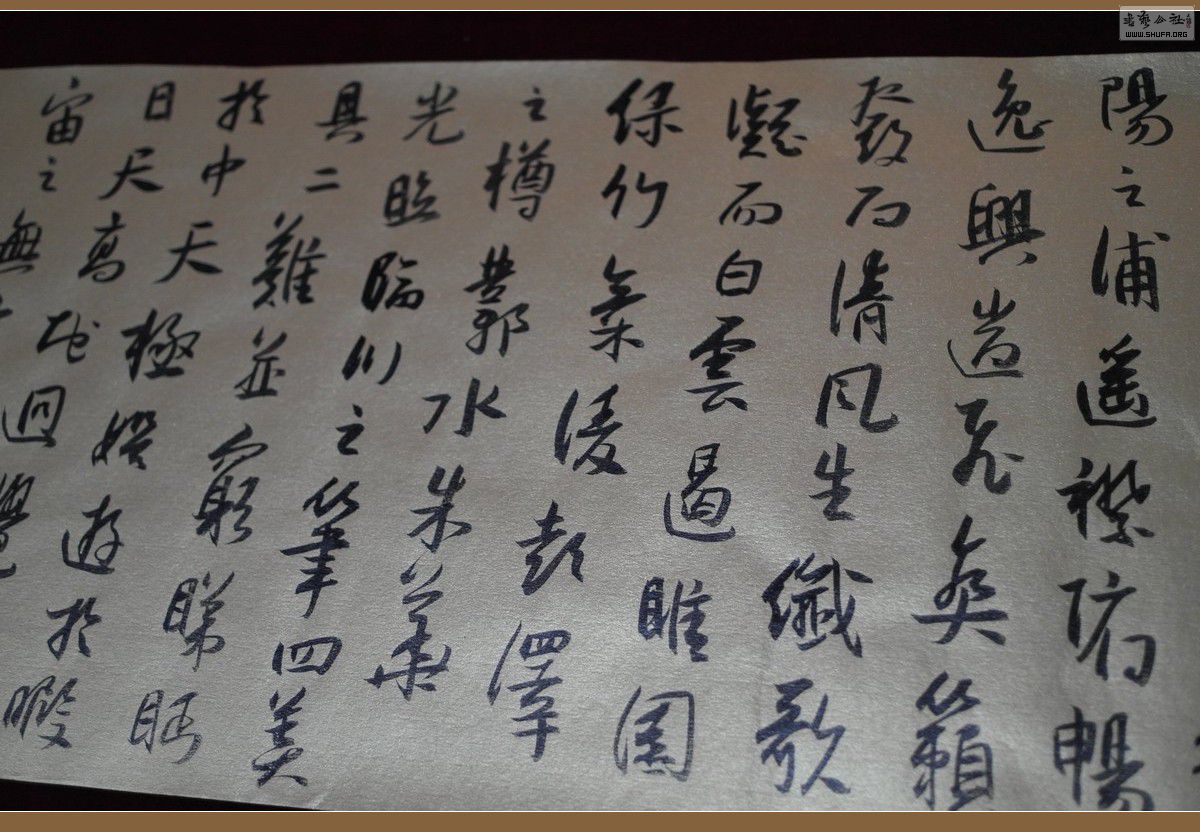 陽之浦遥襟俯暢
逸興遄飛爽籟
發而清風生纖歌
凝而白雲遏睢園
緑竹氣凌彭澤
之樽鄴水朱華
光照臨川之筆四美
具二難並窮睇眄
於中天極娛遊於暇
日天高地迥覺
宙之無
書藝公社
WWW.SHUFA.ORG